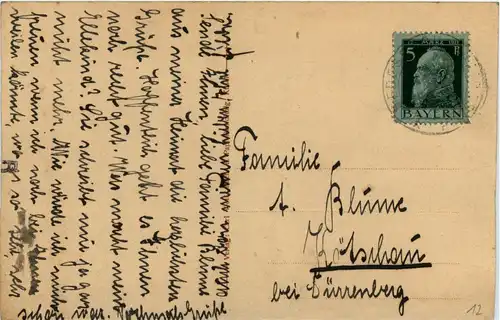 Sende Ihnen, liebe Familie Blume
aus meiner Heimat die herzlichsten
Grüße. Hoffentlich geht es Ihnen
noch recht gut. Was macht mein
Ellekind? Sie schreibt mir ja gar
nicht mehr. Wie würde ich mich
freuen wenn ich noch bei Ihnen
weilen könnte, wo es so sehr
schön war. Nochmals Grüße
12. MÄRZ 1911
5 Pf
BAYERN
Familie
A. Blume
Kötschau
bei Dürrenberg
12